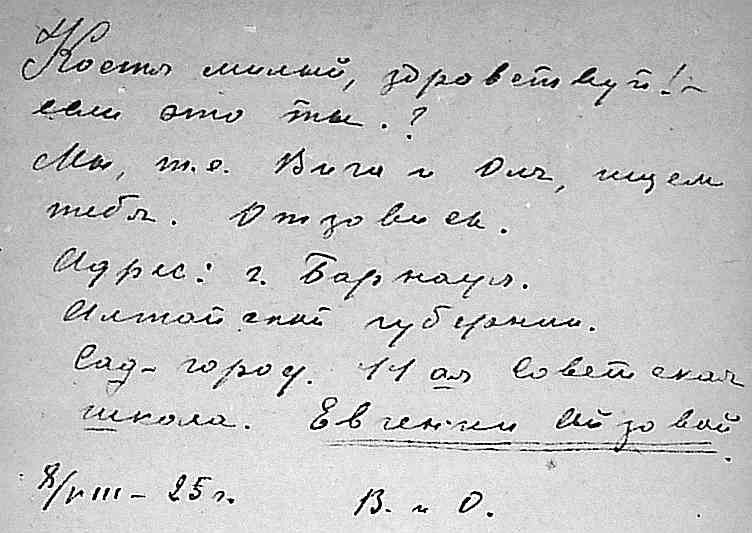 Костя милый, здравствуй! –
если это ты.?
Мы, т.е. Витя и Оля, ищем
тебя. Отзовись.
Адрес: г. Барнаул.
Алтайской губернии.
Сад-город. 11ая Советская
школа. Евгении Айзовой.
8/VIII – 25 г. В. и О.